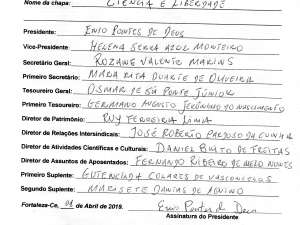 Nome da chapa: CIÊNCIA E LIBERDADE
Presidente: ENIO PONTES DE DEUS
Vice-Presidente: HELENA SERRA AZUL MONTEIRO
Secretário Geral: ROZANE VALENTE MARINS
Primeiro Secretário: MARIA RITA DUARTE DE OLIVEIRA
Tesoureiro Geral: OSMAR DE SÁ PONTE JÚNIOR
Primeiro Tesoureiro: GERMANO AUGUSTO JERÔNIMO DO NASCIMENTO
Diretor de Patrimônio: RUY FERREIRA LIMA
Diretor de Relações Intersindicais: JOSÉ ROBERTO CARDOSO DA CUNHA
Diretor de Atividades Científicas e Culturais: DANIEL DE FREITAS
Diretor de Assuntos de Aposentados: FERNANDO RIBEIRO DE MELO NUNES
Primeiro Suplente: COLARES DE VASCONCELOS
Segundo Suplente: DANTAS DE AQUINO
Fortaleza-Ce, de Abril de 2019.
Enio Pontes de Deus
Assinatura do Presidente